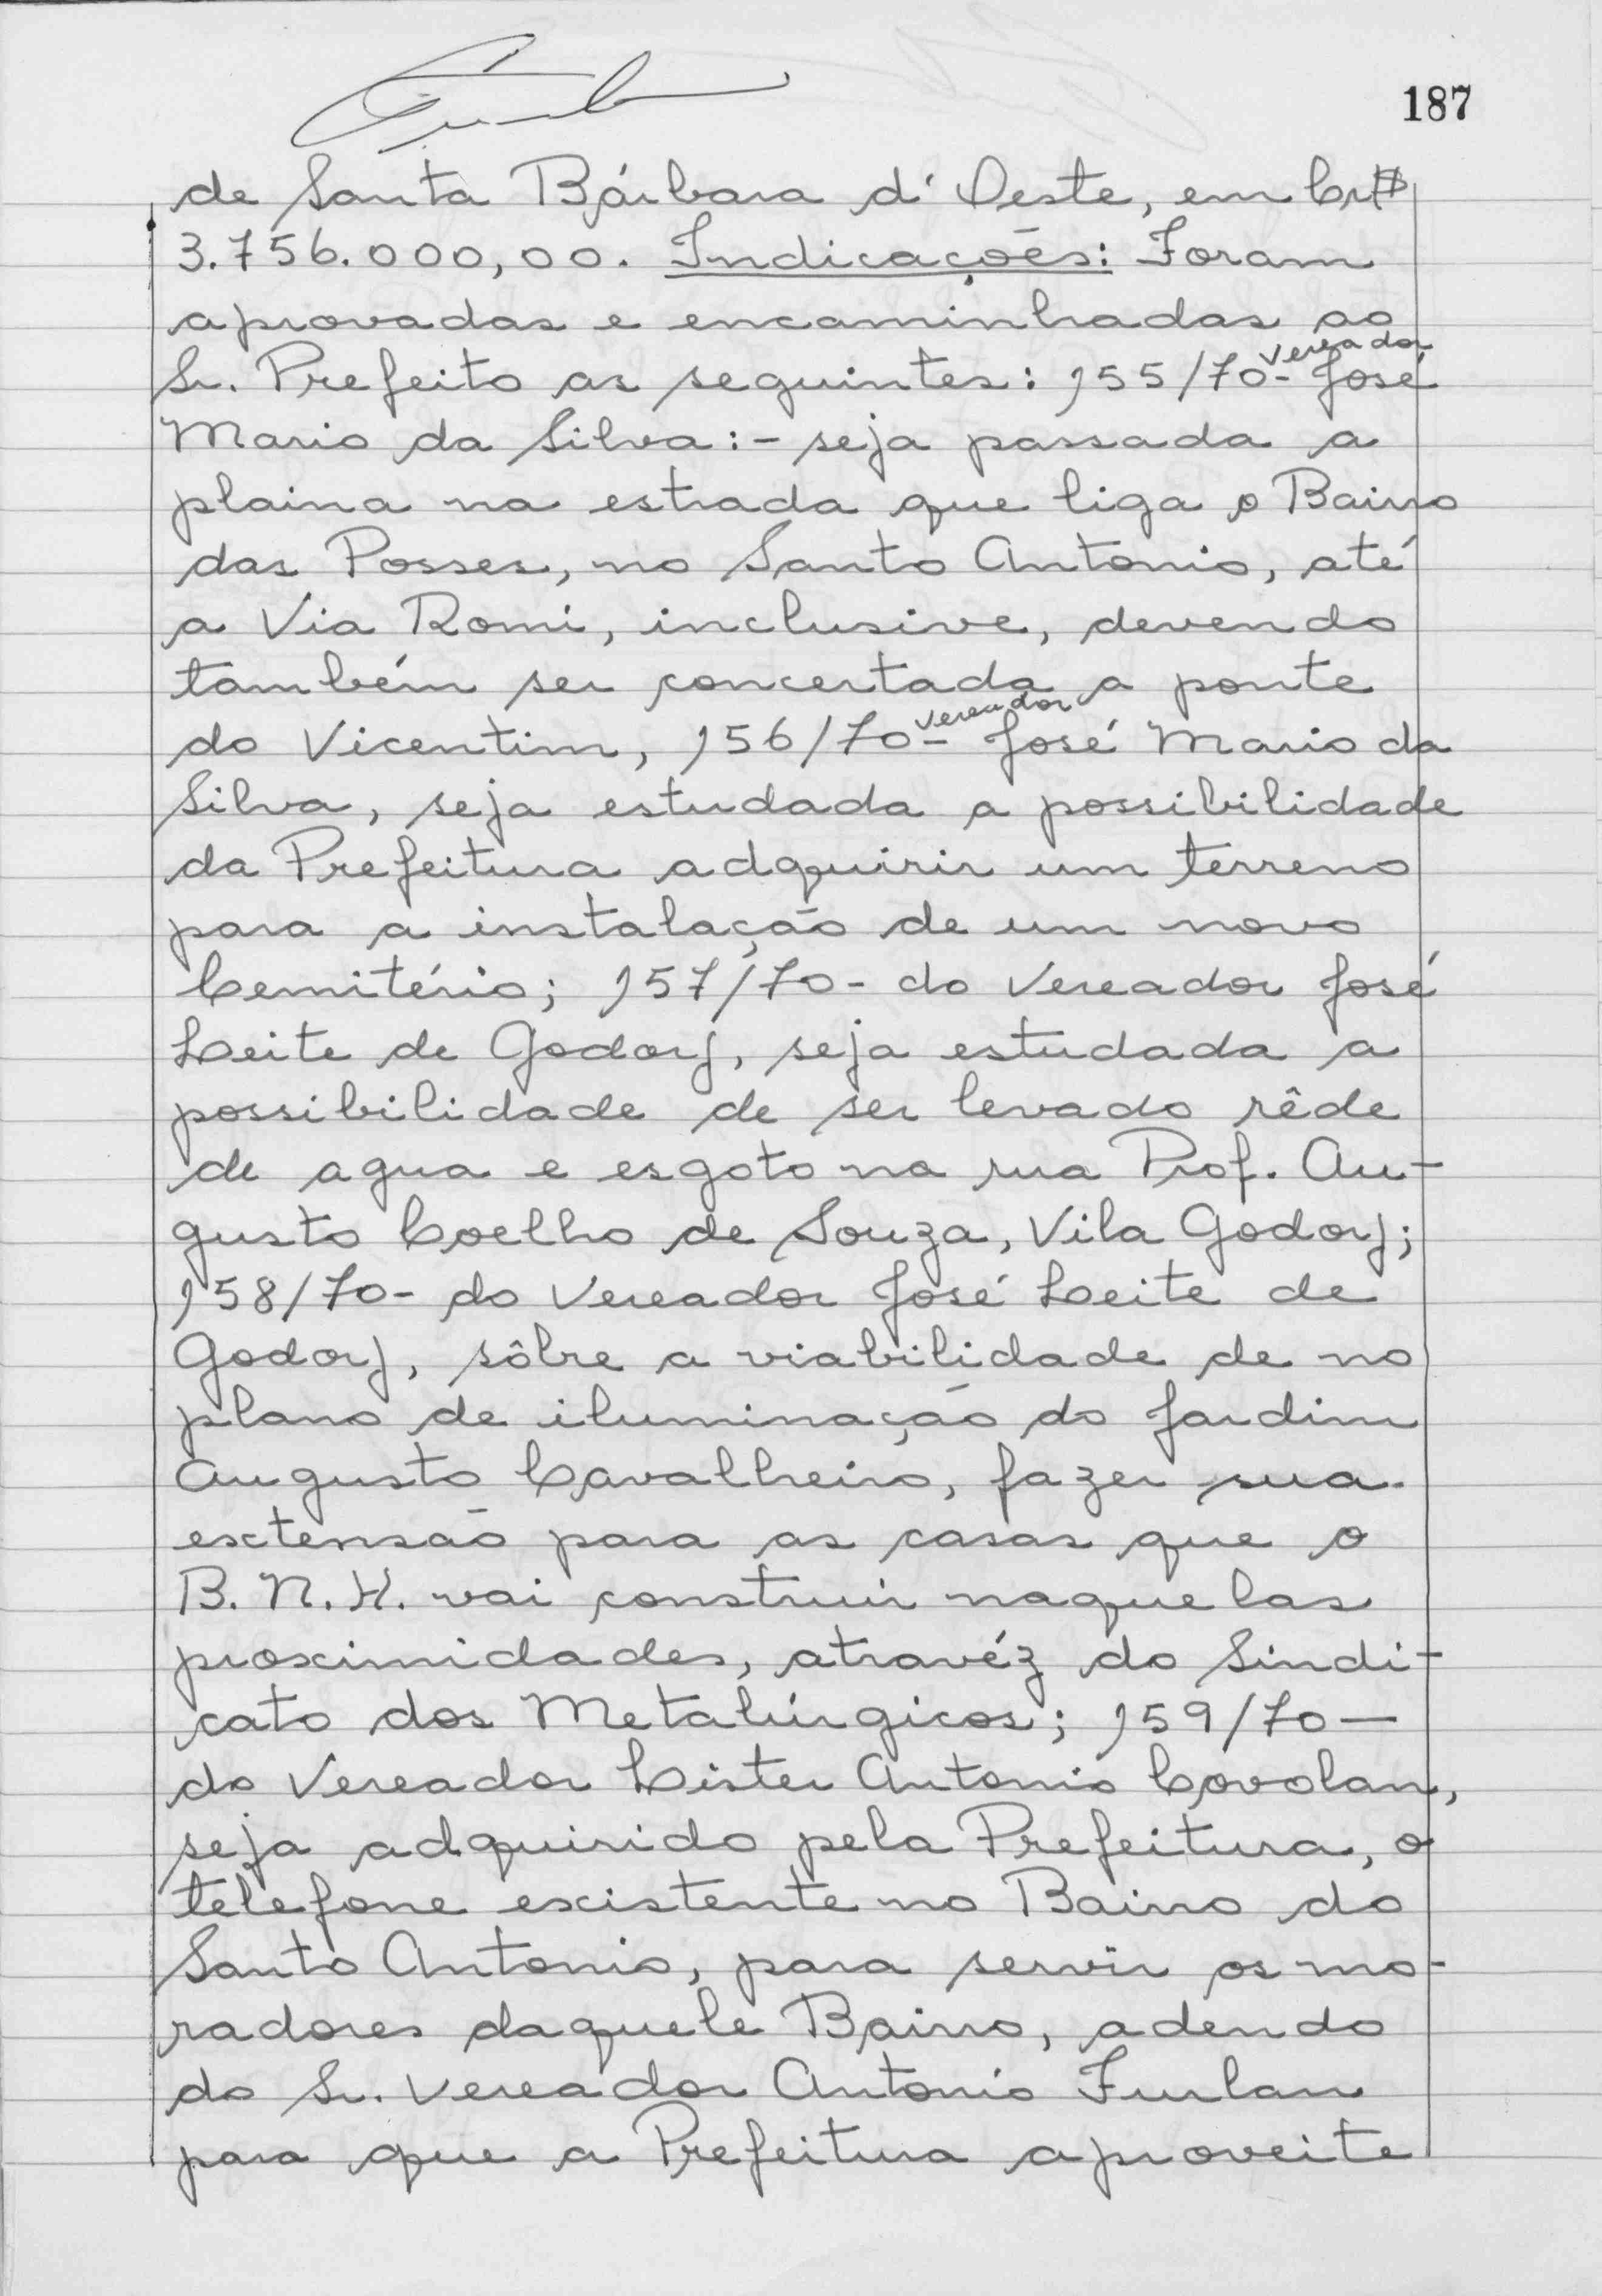 187
de Santa Bárbara d'Oeste, em Cr$
3.756.000,00. Indicações: Foram
aprovadas e encaminhadas ao
Sr. Prefeito as seguintes: 155/70- vereador José
Mario da Silva:- seja passada a
plaina na estrada que liga o Bairro
das Posses, no Santo Antonio, até
a Via Romi, inclusive, devendo
também ser concertada a ponte
do Vicentim, 156/70- vereador José Mario da
Silva, seja estudada a possibilidade
da Prefeitura adquirir um terreno
para a instalação de um novo
Cemitério; 157/70- do Vereador José
Leite de Godoy, seja estudada a
possibilidade de ser levado rêde
de agua e esgoto na rua Prof. Au-
gusto Coelho de Souza, Vila Godoy;
158/70- do Vereador José Leite de
Godoy, sôbre a viabilidade de no
plano de iluminação do Jardim
Augusto Cavalheiro, fazer sua
extensão para as casas que o
B.N.H. vai construir naquelas
proximidades, atravéz do Sindi-
cato dos Metalúrgicos; 159/70-
do Vereador Lister Antonio Covolan,
seja adquirido pela Prefeitura, o
telefone existente no Bairro do
Santo Antonio, para servir os mo-
radores daquele Bairro, adendo
do Sr. Vereador Antonio Furlan
para que a Prefeitura aproveite